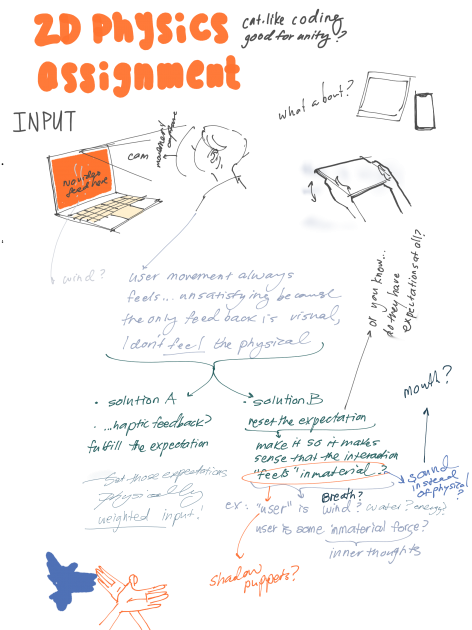 2D Physics
assignment
cat-like coding
good for unity?
INPUT
what about?
cam
movement capture
No video
feed here
wind?
user movement always
feels... unsatisfying because
the only feedback is visual,
I don't feel the physical
or you know...
do they have
expectations at all?
• solution A
• ...haptic feedback?
fulfill the expectation
Set those expectations
physically
weighted input!
• solution B
reset the expectation
make it so it makes
sense that the interaction
"feels" inmaterial..?
mouth?
sound
instead
of physical
?
Breath?
ex: "user" is wind? water? energy?
user is some inmaterial force?
inner thoughts
shadow
puppets?